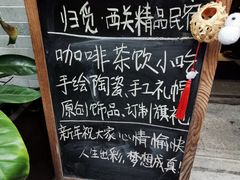 归觅·西关精品民宿
咖啡茶饮小吃
手绘陶瓷、手工礼帽
原创饰品、订制旗袍
新年祝大家心情愉快
人生出彩，梦想成真！